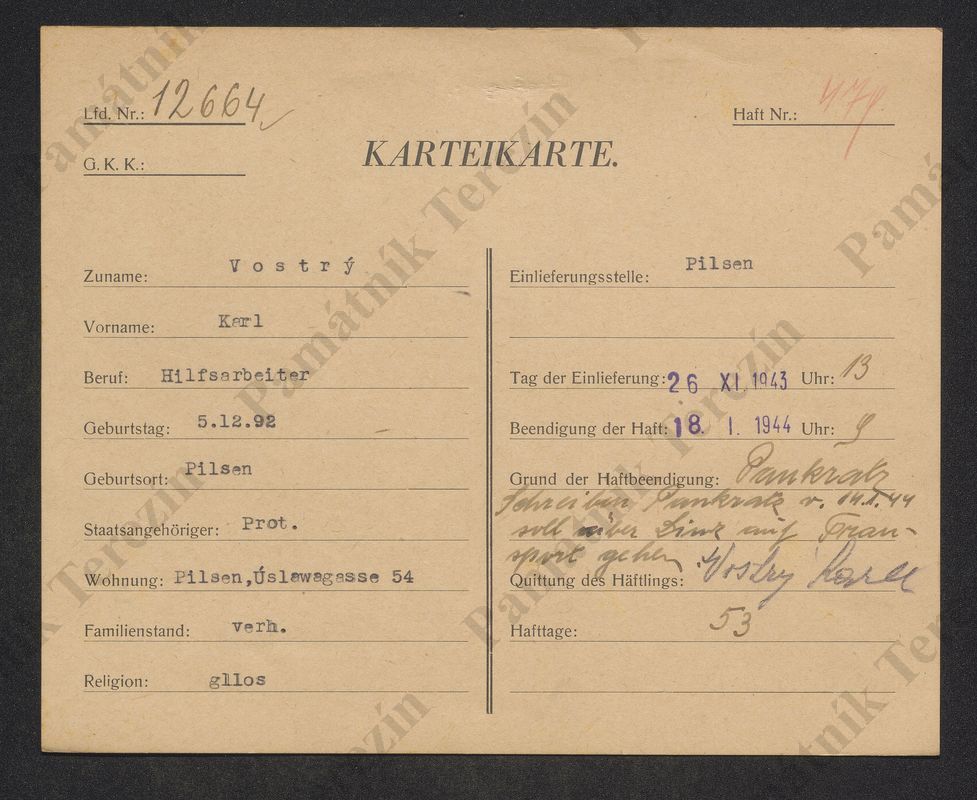 Lfd. Nr.: 12664
Haft Nr.:
G. K. K.:
KARTEIKARTE.
Zuname: Vostrý
Vorname: Karl
Beruf: Hilfsarbeiter
Geburtstag: 5.12.92
Geburtsort: Pilsen
Staatsangehöriger: Prot.
Wohnung: Pilsen,Úslawagasse 54
Familienstand: verh.
Religion: gllos
Einlieferungsstelle: Pilsen
Tag der Einlieferung: 26 XI. 1943 Uhr: 13
Beendigung der Haft: 18. I. 1944 Uhr: 9
Grund der Haftbeendigung: Pankratz
Schreiben Pankratz v. 14.I.44
soll über Linz auf Tran-
sport gehen
Quittung des Häftlings: Vostrý Karel
Hafttage: 53
Památník Terezín